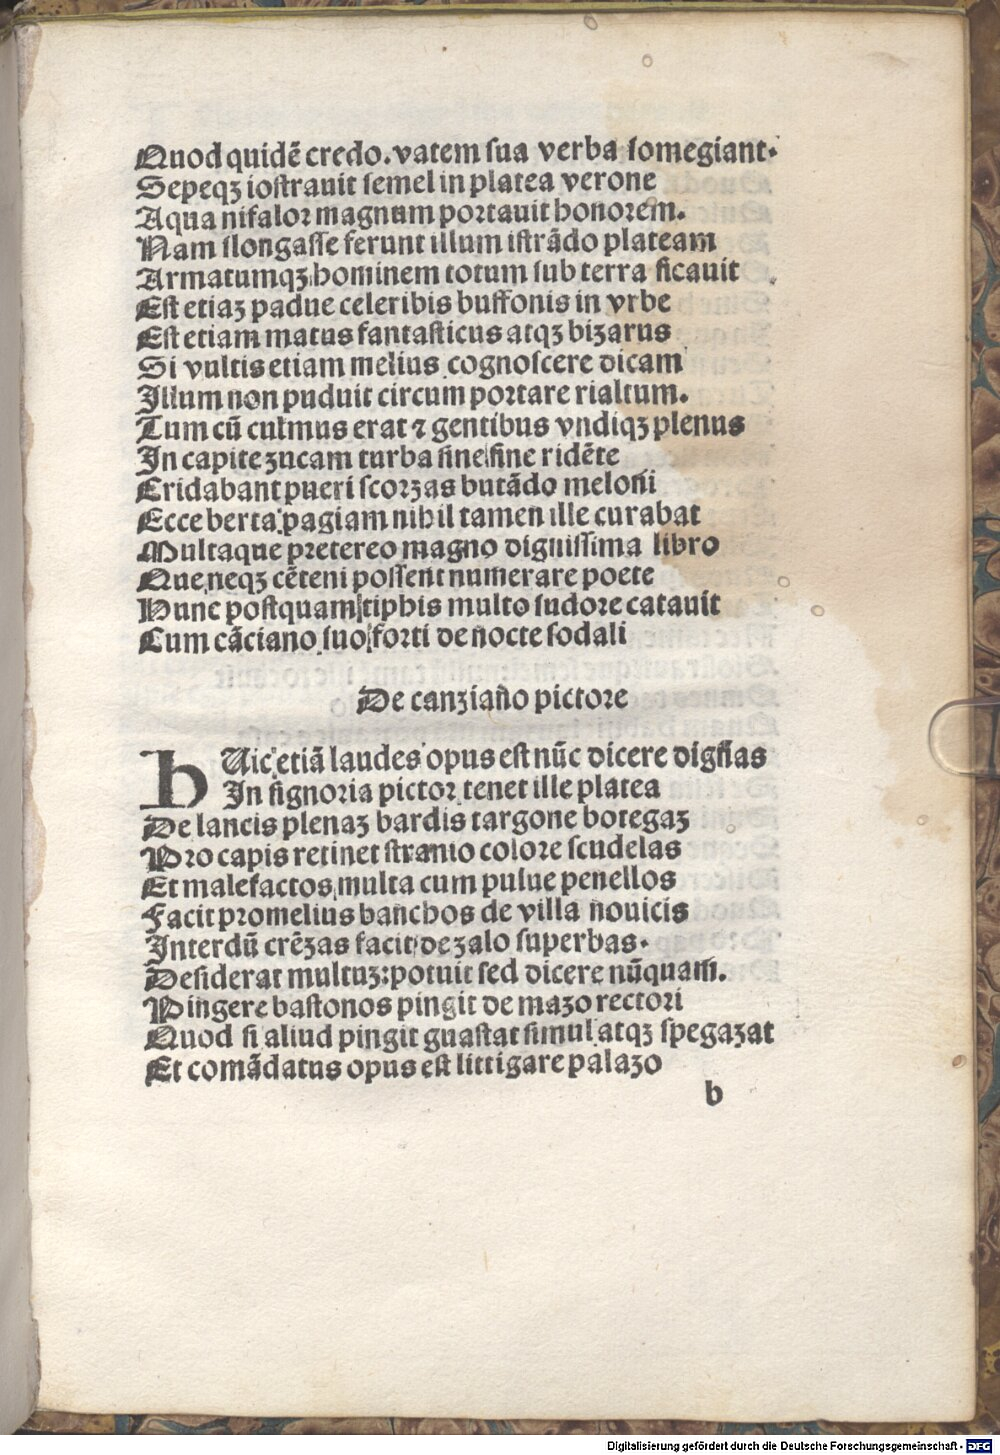 Quod quidē credo. vatem ſua verba ſomegiant.
Sepeqꝫ ioſtrauit ſemel in platea verone
Aqua nifalor magnum portauit honorem.
Nam ſlongaſſe ferunt illum iſtrādo plateam
Armatumqꝫ hominem totum ſub terra ficauit
Eſt etiaꝫ padue celeribis buffonis in vrbe
Eſt etiam matus fantaſticus atqꝫ bizarus
Si vultis etiam melius cognoſcere dicam
Illum non puduit circum portare rialtum.
Tum cū culmus erat ⁊ gentibus vndiqꝫ plenus
In capite zucam turba ſine fine ridēte
Cridabant pueri ſcorzas butādo meloni
Ecce berta pagiam nihil tamen ille curabat
Multaque pretereo magno digniſſima libro
Que neqꝫ cēteni poſſent numerare poete
Hunc poſtquam tiphis multo ſudore catauit
Cum cāciano ſuo forti de nocte ſodali
De canziano pictore
hUic etiā laudes opus eſt nūc dicere dignas
In ſignoria pictor tenet ille platea
De lancis plenaꝫ bardis targone botegaꝫ
Pro capis retinet ſtranio colore ſcudelas
Et malefactos multa cum pulue penellos
Facit promelius banchos de villa nouicis
Interdū crēzas facit de zalo ſuperbas.
Deſiderat multuꝫ: potuit ſed dicere nūquam.
Pingere baſtonos pingit de mazo rectori
Quod ſi aliud pingit guaſtat ſimul atqꝫ ſpegazat
Et comādatus opus eſt littigare palazo
b
Digitalisierung gefördert durch die Deutsche Forschungsgemeinschaft - DFG